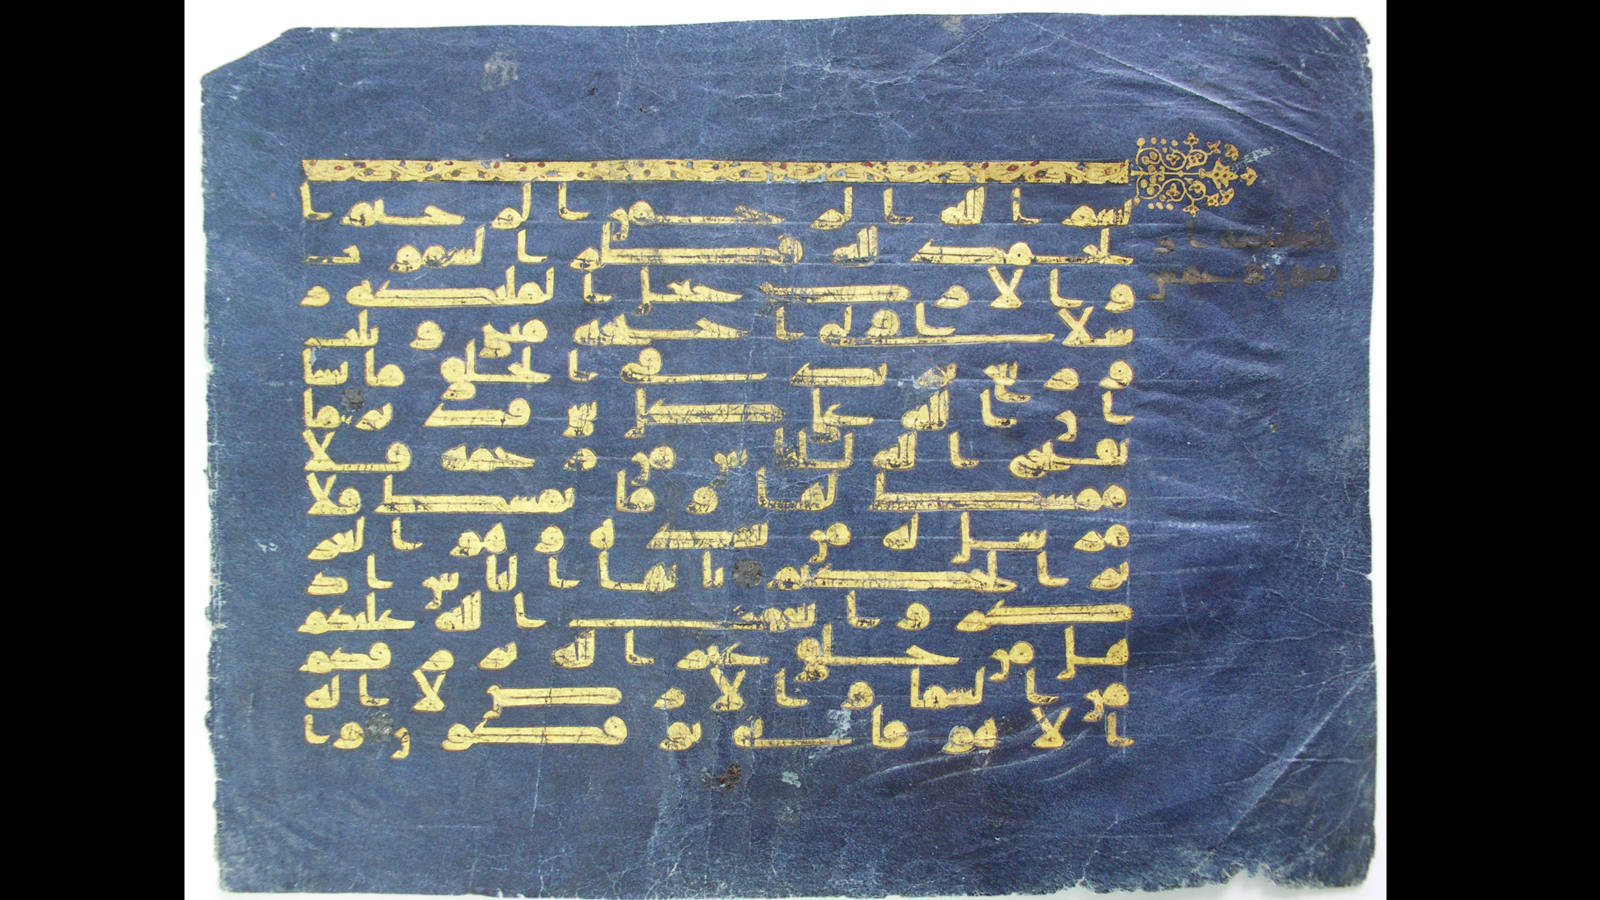 بسم الله الرحمن الرحيم ا
لحمد لله فطر السموت
و الارض جعل الملئكة ر
سلا اولى اجنحة مثنى و ثلث
و ربع يزيد في الخلق ما يشا
ان الله على كل شي قدير ما
يفتح الله للناس من رحمة فلا
ممسك لها و ما يمسك فلا
مرسل له من بعده و هو العز
يز الحكيم يايها الناس اذ
كروا نعمت الله عليكم
هل من خلق غير الله يرزقكم
من السما و الارض لا اله
الا هو فانى توفكون و ا